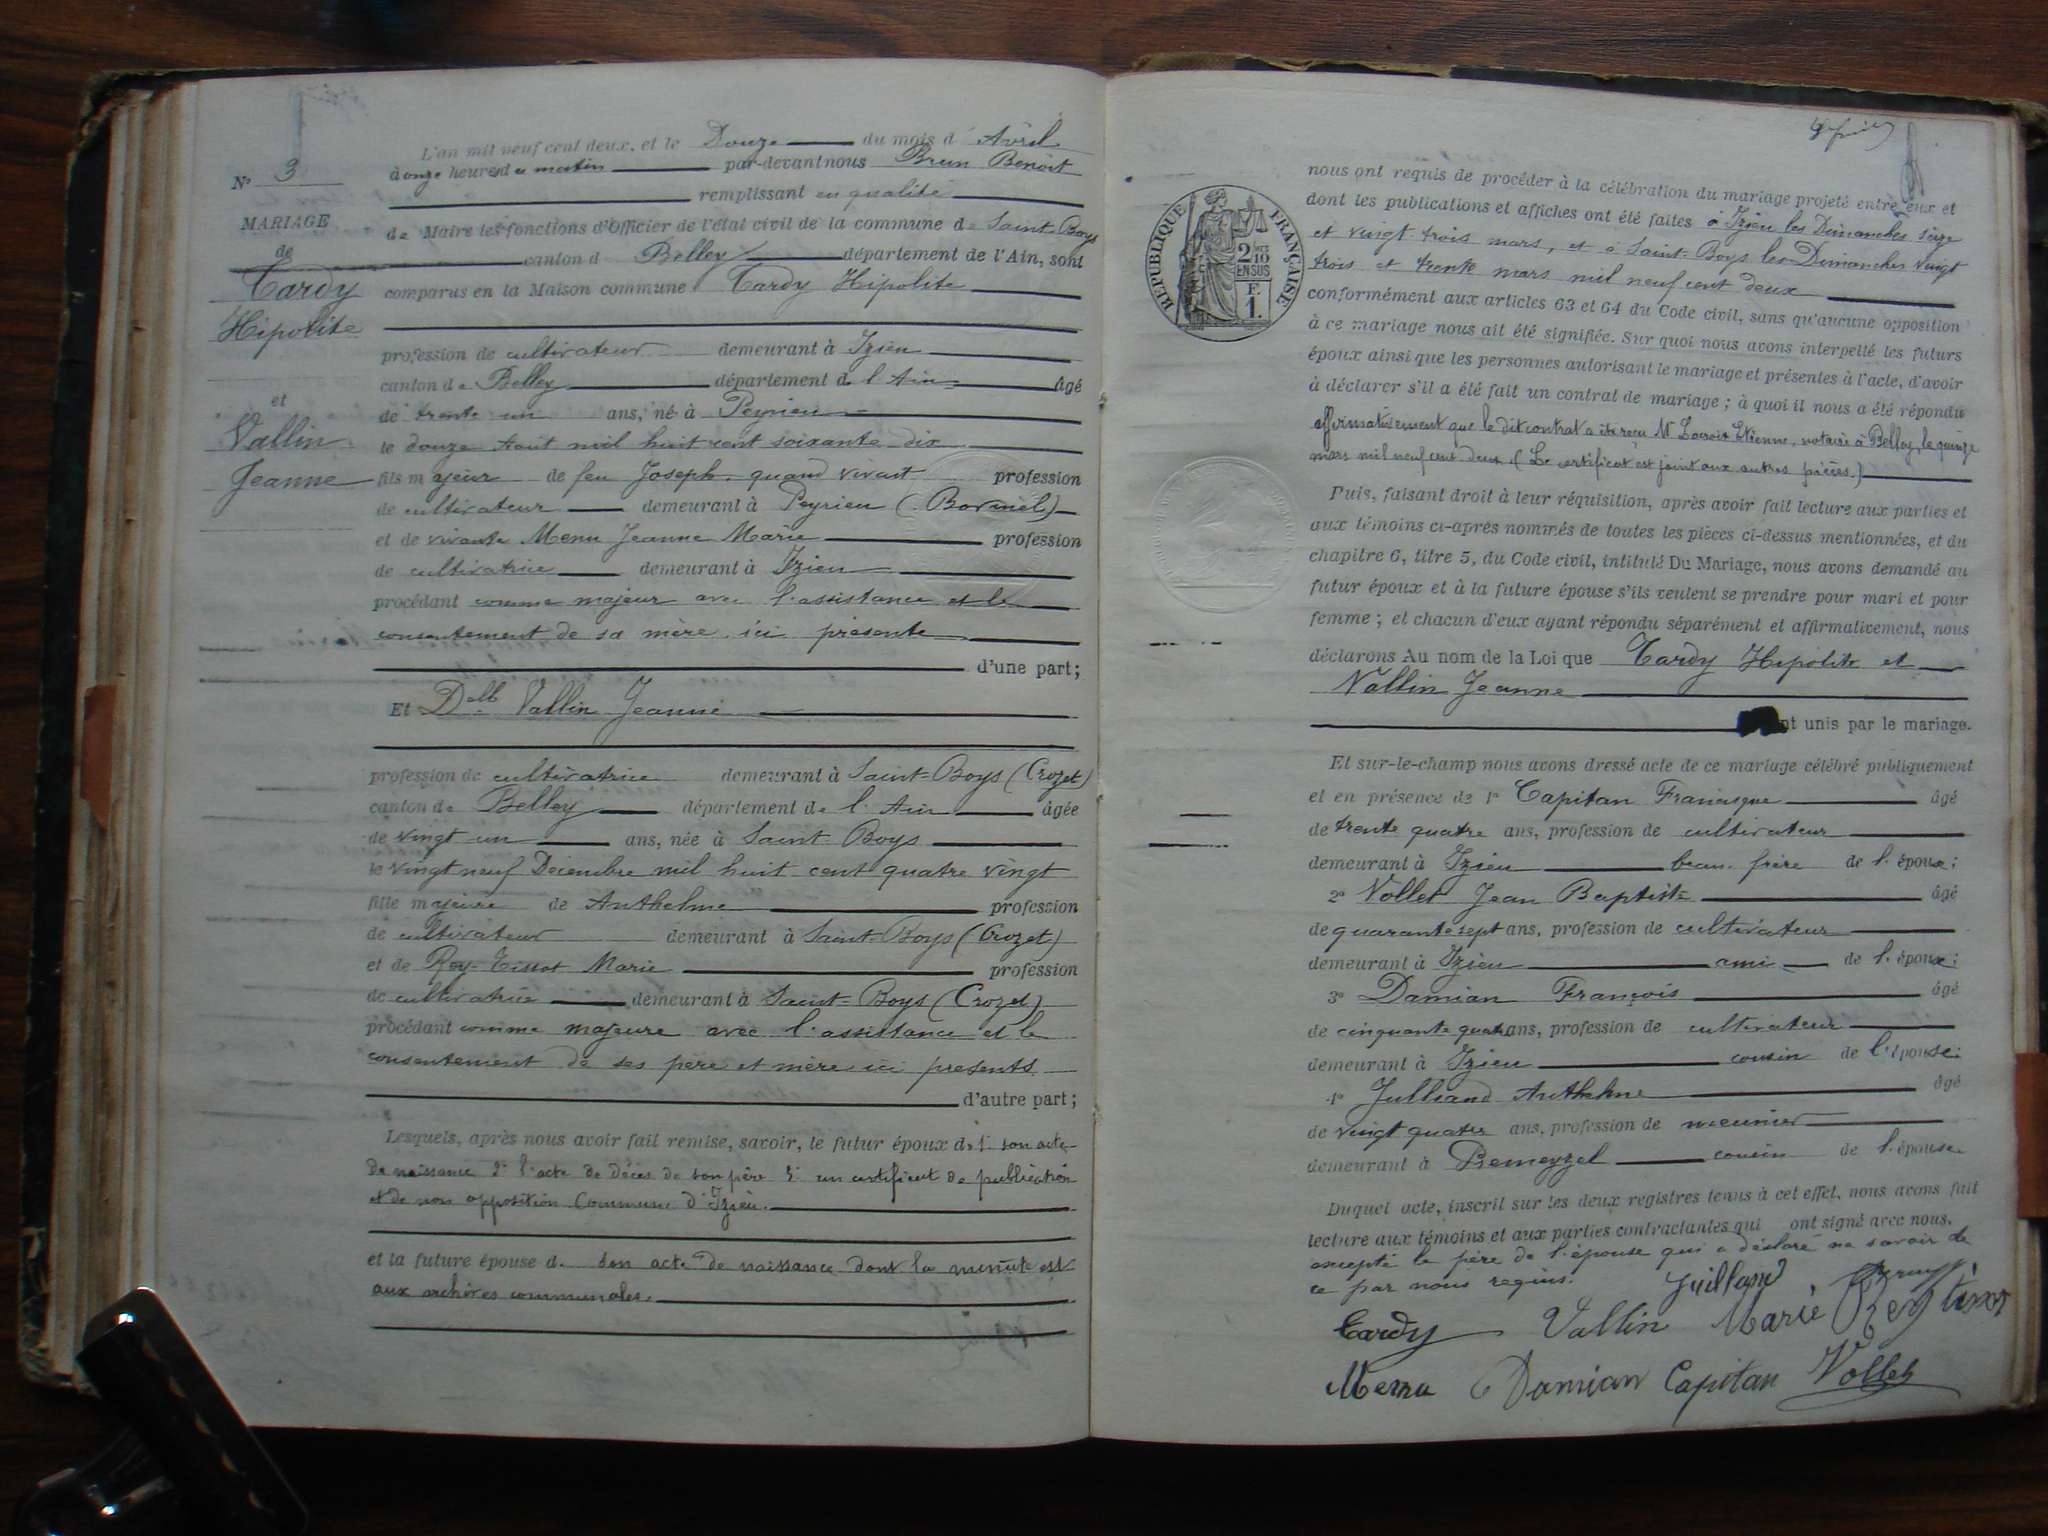 L'an mil neuf cent deux, et le Douze du mois d'Avril
à onze heures du matin par-devant nous Brun Benoit
remplissant en qualité
de Maire les fonctions d'Officier de l'état civil de la commune de Saint-Boys
canton de Belley département de l'Ain, sont
comparus en la Maison commune Tardy Hipolite
profession de cultivateur demeurant à Izieu
canton de Belley département de l'Ain âgé
de trente un ans, né à Peyrieu
le douze Août mil huit cent soixante-dix
fils majeur de feu Joseph, quand vivait profession
de cultivateur demeurant à Peyrieu
et de vivante Menu Jeanne Marie profession
de cultivatrice demeurant à Izieu
procédant comme majeur avec l'assistance et le
consentement de sa mère ici présente
d'une part;
Et Delle Vallin Jeanne
profession de cultivatrice demeurant à Saint-Boys (Crozet)
canton de Belley département de l'Ain âgée
de vingt un ans, née à Saint-Boys
le vingt neuf Décembre mil huit cent quatre vingt
fille majeure de Anthelme profession
de cultivateur demeurant à Saint-Boys (Crozet)
et de Rey-Tissot Marie profession
de cultivatrice demeurant à Saint-Boys (Crozet)
procédant comme majeure avec l'assistance et le
consentement de ses père et mère ici présents
d'autre part;
Lesquels, après nous avoir fait remise, savoir, le futur époux de 1° son acte
de naissance 2° l'acte de décès de son père 3° un certificat de publication
et de non opposition Commune d'Izieu.
et la future épouse de son acte de naissance dont la minute est
aux archives communales.
N° 3
MARIAGE
de
Tardy
Hipolite
et
Vallin
Jeanne
RÉPUBLIQUE FRANÇAISE
2/10
EN SUS
F.
1.
nous ont requis de procéder à la célébration du mariage projeté entre eux et
dont les publications et affiches ont été faites à Izieu les Dimanches seize
et vingt trois mars, et à Saint-Boys les Dimanches vingt
trois et trente mars mil neuf cent deux
conformément aux articles 63 et 64 du Code civil, sans qu'aucune opposition
à ce mariage nous ait été signifiée. Sur quoi nous avons interpellé les futurs
époux ainsi que les personnes autorisant le mariage et présentes à l'acte, d'avoir
à déclarer s'il a été fait un contrat de mariage; à quoi il nous a été répondu
affirmativement que le dit contrat a été reçu Mr Lacroix Etienne, notaire à Belley, le quinze
mars mil neuf cent deux. (Le certificat est joint aux autres pièces.)
Puis, faisant droit à leur réquisition, après avoir fait lecture aux parties et
aux témoins ci-après nommés de toutes les pièces ci-dessus mentionnées, et du
chapitre 6, titre 5, du Code civil, intitulé Du Mariage, nous avons demandé au
futur époux et à la future épouse s'ils veulent se prendre pour mari et pour
femme; et chacun d'eux ayant répondu séparément et affirmativement, nous
déclarons Au nom de la Loi que Tardy Hipolite et
Vallin Jeanne
nt unis par le mariage.
Et sur-le-champ nous avons dressé acte de ce mariage célébré publiquement
et en présence de 1° Capitan Francisque âgé
de trente quatre ans, profession de cultivateur
demeurant à Izieu beau-frère de l'époux;
2° Vollet Jean Baptiste âgé
de quarante sept ans, profession de cultivateur
demeurant à Izieu ami de l'époux;
3° Damian François âgé
de cinquante quatre ans, profession de cultivateur
demeurant à Izieu cousin de l'épouse;
4° Julliand Anthelme âgé
de vingt quatre ans, profession de meunier
demeurant à Premeyzel cousin de l'épouse
Duquel acte, inscrit sur les deux registres tenus à cet effet, nous avons fait
lecture aux témoins et aux parties contractantes qui ont signé avec nous,
excepté le père de l'épouse qui a déclaré ne savoir de
ce par nous requis.
Tardy Vallin Marie Rey tissot
Menu Damian Capitan Vollet